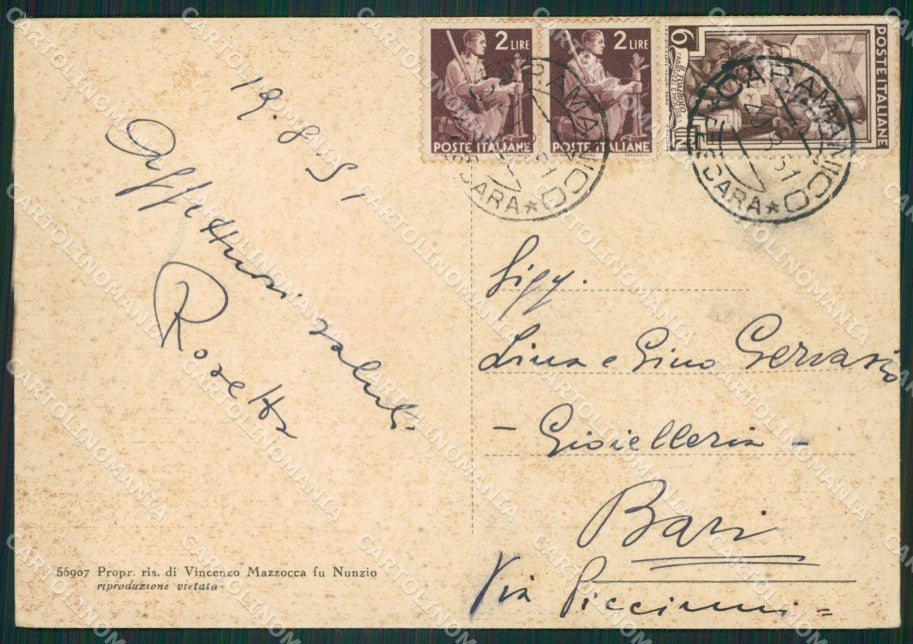 2 LIRE
POSTE ITALIANE
2 LIRE
POSTE ITALIANE
6
POSTE ITALIANE
CARAMANICO
PESCARA
19.8.51
Affettuosi saluti
Rosetta
Sigg.
Lina e Gino Gervasio
- Gioielleria -
Bari
Via Piccinni =
56907 Propr. ris. di Vincenzo Mazzocca fu Nunzio
riproduzione vietata
CARTOLINOMANIA